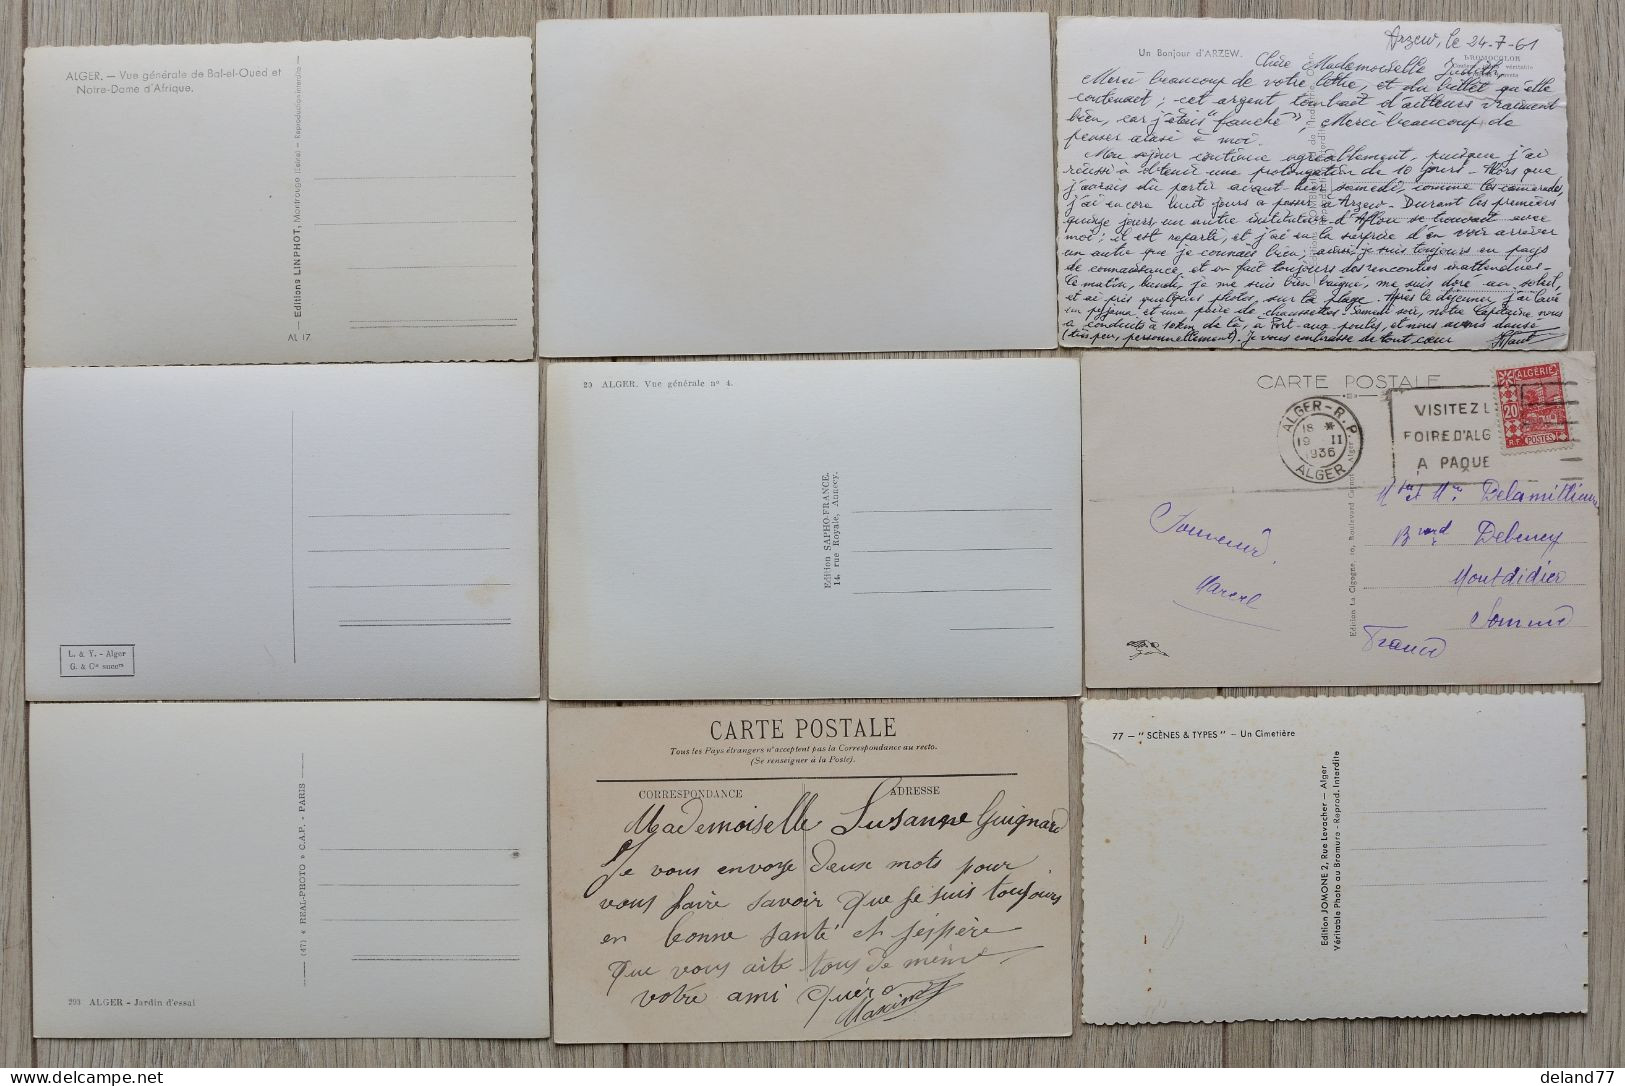 ALGER. — Vue générale de Bal-el-Oued et
Notre-Dame d'Afrique.
— Editions LINPHOT, Montrouge (Seine) — Reproduction interdite —
AL 17
Un Bonjour d'ARZEW.
Arzew, le 24-7-61
BROMOCOLOR
Chère Mademoiselle
Merci beaucoup de votre lettre, et du billet qu'elle
contenait ; cet argent tombait d'ailleurs vraiment
bien, car j'étais "fauché", Merci beaucoup de
penser ainsi à moi.
Mon séjour continue agréablement, puisque j'ai
réussi à obtenir une prolongation de 10 jours - Alors que
j'aurais dû partir avant hier samedi, comme les camarades,
j'ai encore huit jours à passer à Arzew - Durant les premiers
quinze jours, un autre instituteur d'Aflou se trouvait avec
moi ; il est reparti, et j'ai eu la surprise d'en voir arriver
un autre que je connais bien ; ainsi je suis toujours en pays
de connaissance, et on fait toujours des rencontres inattendues -
Ce matin, lundi, je me suis bien baigné, me suis doré au soleil,
et ai pris quelques photos, sur la plage. Après le déjeuner j'ai lavé
un pyjama et une paire de chaussettes. Samedi soir, notre Capitaine nous
a conduits à 10 km de là, à Port-aux-poules, et nous avons dansé
(très peu, personnellement). Je vous embrasse de tout cœur
L. & Y. - Alger
G. & Cie succrs
20 ALGER. Vue générale n° 4.
Edition SAPHO-FRANCE.
14, rue Royale, Annecy.
CARTE POSTALE
ALGER-R.P.
18 *
19 II
1936
ALGER
VISITEZ L
FOIRE D'ALG
A PAQUE
ALGÉRIE
20
R.F. POSTES
Edition La Cigogne, 10, Boulevard Carnot, Alger
Mr et Mme Delamillieure
Bvard Debeney
Montdidier
Somme
France
Souvenir
Marcel
293 ALGER - Jardin d'essai
(47) « REAL-PHOTO » C.A.P. - PARIS
CARTE POSTALE
Tous les Pays étrangers n'acceptent pas la Correspondance au recto.
(Se renseigner à la Poste).
CORRESPONDANCE
ADRESSE
Mademoiselle Susanne Guignard
Je vous envoye deux mots pour
vous faire savoir que je suis toujours
en bonne santé et j'espère
que vous aite tous de même
votre ami
Maxime
77 — " SCÈNES & TYPES " — Un Cimetière
Edition JOMONE 2, Rue Levacher — Alger
Véritable Photo au Bromure - Reprod. Interdite
Delcampe.net
deland77